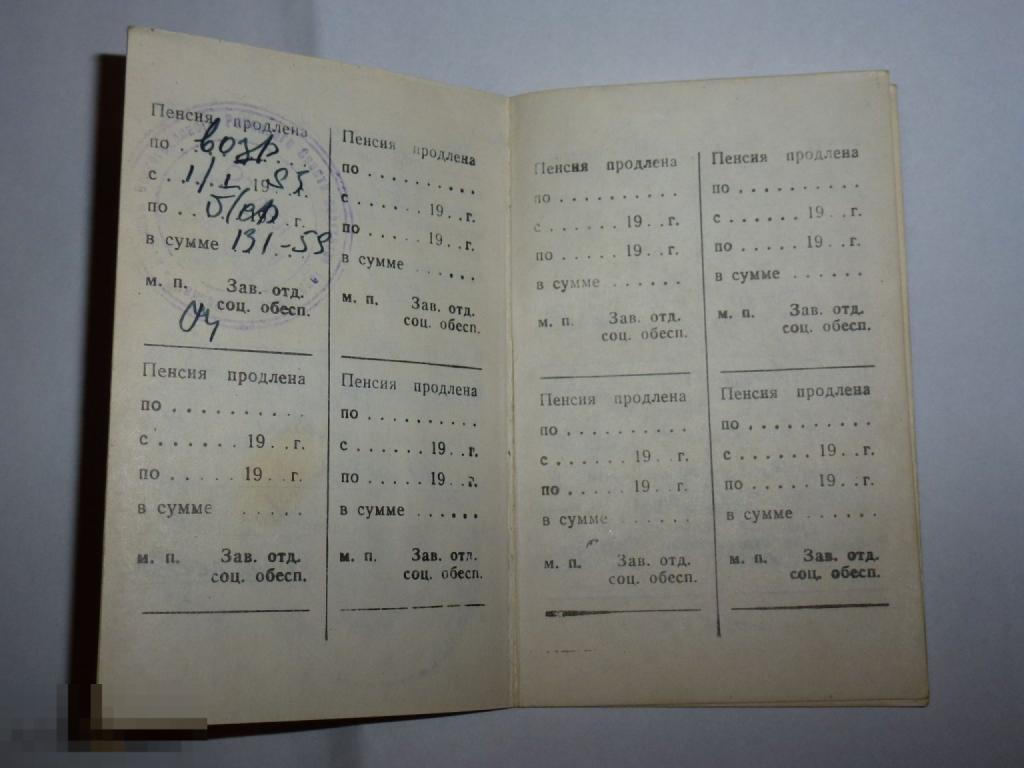 Пенсия продлена
по возр
с 1/I 19
по г.
в сумме 131-59
м. п. Зав. отд.
соц. обесп.
Пенсия продлена
по . . . . . . . . . .
с . . . . . . 19. . г.
по . . . . . 19. . г.
в сумме . . . . .
м. п. Зав. отд.
соц. обесп.
Пенсия продлена
по . . . . . . . . . .
с . . . . . . 19. . г.
по . . . . . 19. . г.
в сумме . . . . . .
м. п. Зав. отд.
соц. обесп.
Пенсия продлена
по . . . . . . . . . .
с . . . . . . 19. . г.
по . . . . . 19. . г.
в сумме . . . . . .
м. п. Зав. отд.
соц. обесп.
Пенсия продлена
по . . . . . . . . . .
с . . . . . . 19. . г.
по . . . . . 19. . г.
в сумме . . . . . .
м. п. Зав. отд.
соц. обесп.
Пенсия продлена
по . . . . . . . . . .
с . . . . . . 19. . г.
по . . . . . 19. . г.
в сумме . . . . . .
м. п. Зав. отд.
соц. обесп.
Пенсия продлена
по . . . . . . . . . .
с . . . . . . 19. . г.
по . . . . . 19. . г.
в сумме . . . . . .
м. п. Зав. отд.
соц. обесп.
Пенсия продлена
по . . . . . . . . . .
с . . . . . . 19. . г.
по . . . . . 19. . г.
в сумме . . . . . .
м. п. Зав. отд.
соц. обесп.